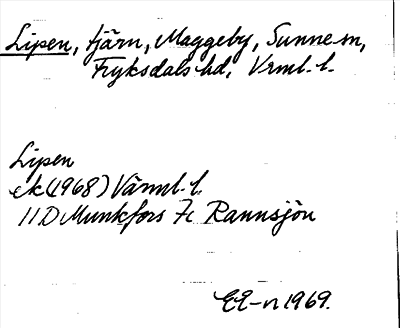 Lipen, tjärn, Maggeby, Sunne sn,
Fryksdals hd, Vrml. l.
Lipen
ek (1968) Värml. l.
11 D Munkfors 7c Rannsjön
EE-n 1969.